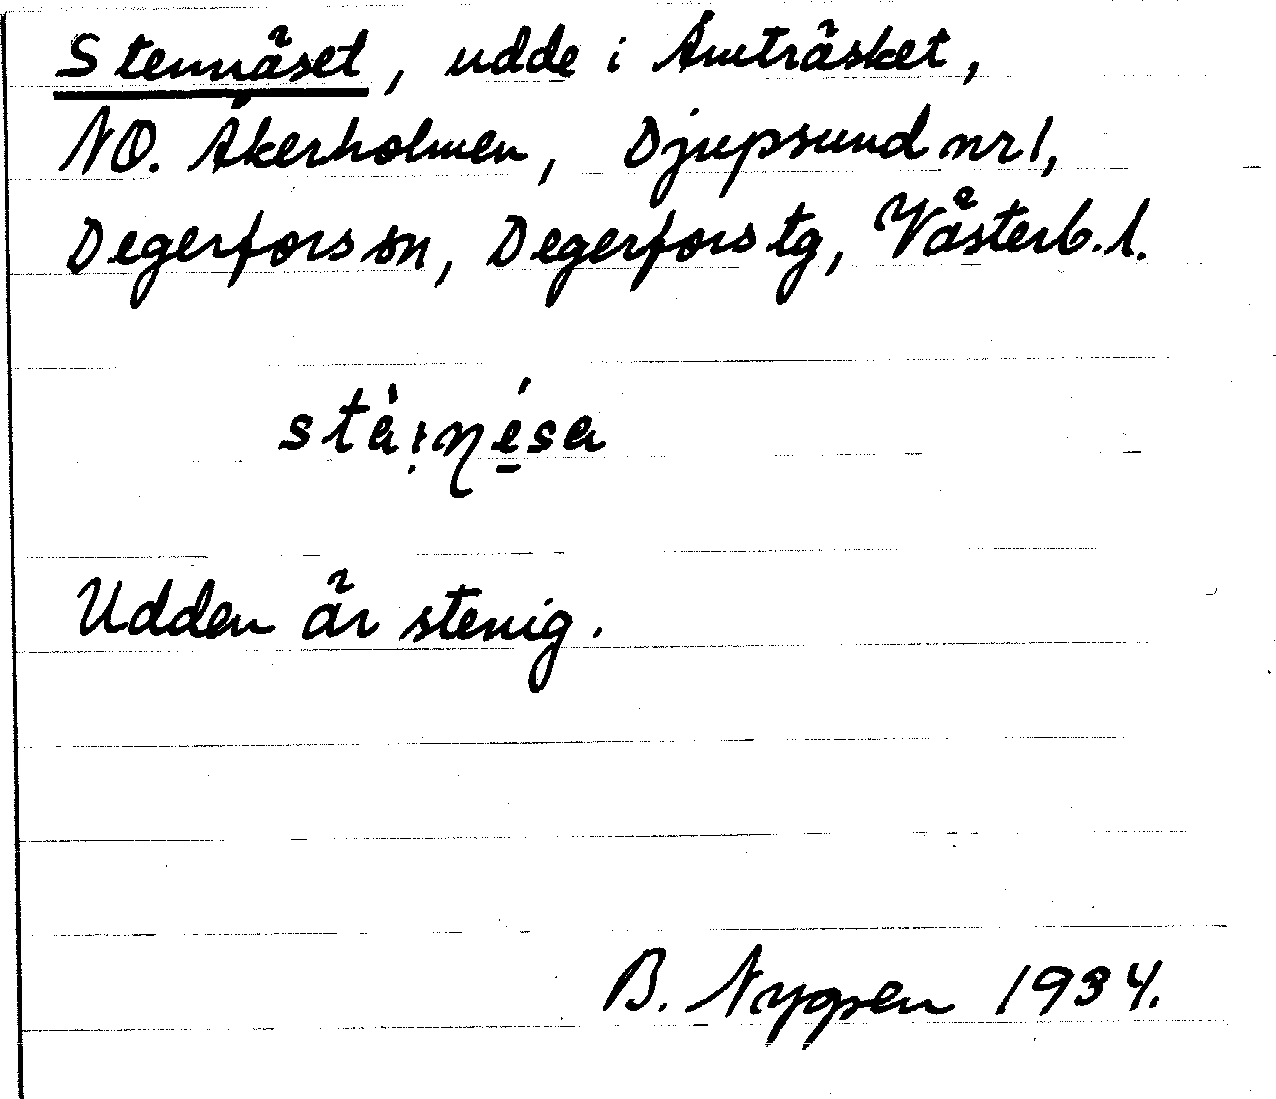 Stennäset, udde i Åmträsket,
NO. Åkerholmen, Djupsund nr 1,
Degerfors sn, Degerfors tg, Västerb. l.
Udden är stenig.
B. 1934.